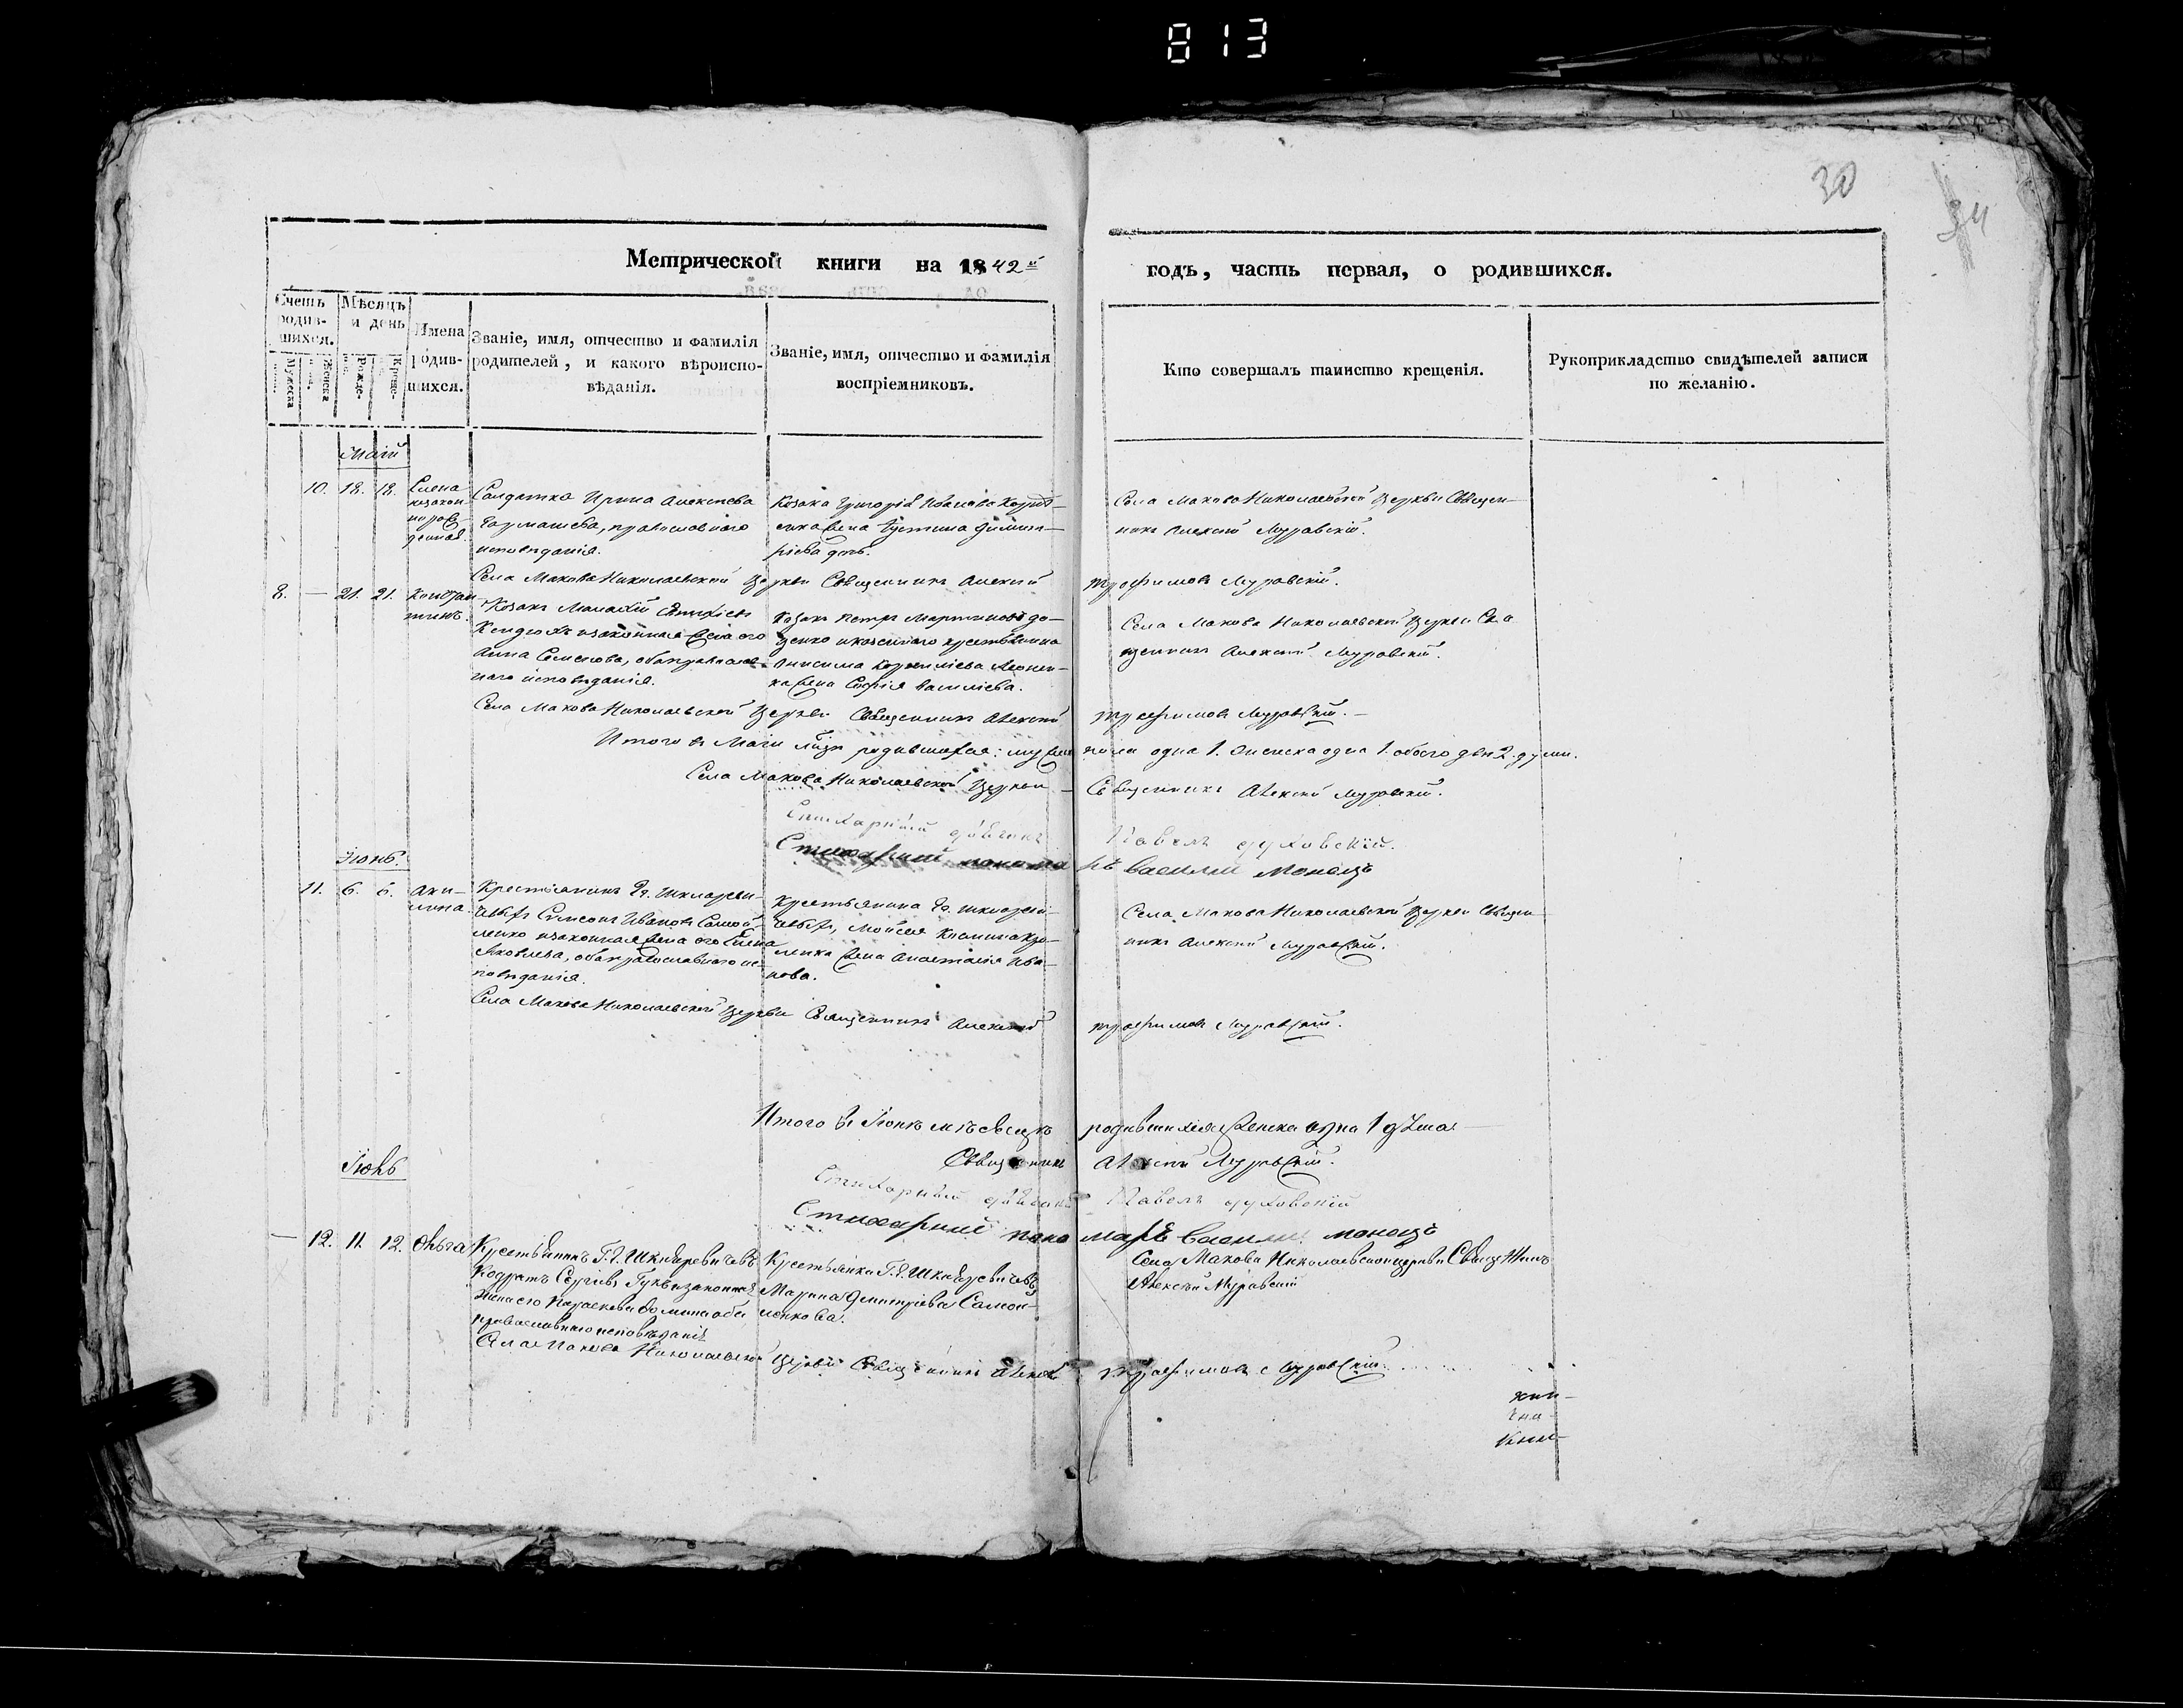 813
30
34
Метрической книги на 1842й годъ, часть первая, о родившихся.
Счетъ родившихся.
Мужеска
Женска
Мѣсяцъ и день
Рожде-
Креще-
Имена родившихся.
Званіе, имя, отчество и фамилія родителей, и какого вѣроисповѣданія.
Званіе, имя, отчество и фамилія воспріемниковъ.
Кто совершалъ таинство крещенія.
Рукоприкладство свидѣтелей записи по желанію.
Маій
10. 18. 18. Елена незакон-
норож-
денная.
Солдатка Ирина Алексѣева
православнаго
исповѣданія.
Козака Григорія Иванова
жена Іустина Димит-
ріева дочь.
Села Макова Николаевской Церкви Священ-
никъ Алексій Муравскій.
Села Макова Николаевской Церкви Священникъ Алексій Трофимовъ Муравскій.
8. — 21. 21. Констан-
тинъ.
Козакъ
и законная жена его
Анна Семенова, оба православ-
наго исповѣданія.
Козакъ Петръ Мартиновъ До-
ценко и казеннаго крестьянина
Онисима Корнилієва
жена Софія Василіева.
Села Макова Николаевской Церкви Свя-
щенникъ Алексій Муравскій.
Села Макова Николаевской Церкви Священникъ Алексій Трофимовъ Муравскій.
Итого въ Маіи родившихся: мужеска пола одна 1. женска одна 1. обоего двѣ 2. души.
Села Макова Николаевской Церкви Священникъ Алексій Муравскій.
Стихарный дьячекъ Павелъ Духовскій.
Стихарный пономарь Василий Монецъ
Іюнь.
11. 6. 6. Аки-
лина.
Крестьянинъ Гг. Шкляреви-
чевыхъ Симеонъ Ивановъ Самой-
ленко и законная жена его Елена
Яковлева, оба православнаго ис-
повѣданія.
Крестьянина Гг. Шкляреви-
чевыхъ, Мойсея
жена Анастасія Ива-
нова.
Села Макова Николаевской Церкви Священ-
никъ Алексій Муравскій.
Села Макова Николаевской Церкви Священникъ Алексій Трофимовъ Муравскій.
Итого въ Іюнѣ мѣсяцѣ родившихся женска одна 1 душа
Священникъ Алексій Муравскій.
Іюль
Стихарный дьячекъ Павелъ Духовскій
Стихарный пономарь Василий Монецъ
— 12. 11. 12. Ольга
Крестьянинъ Г.г. Шкляревичевъ
Кодратъ Сергіевъ Гукъ и законная
жена его Параскева Фомина оба
православнаго исповѣданія
Крестьянка Г.г. Шкляревичевъ
Марина Дмитріева Самой-
ленкова.
Села Макова Николаевской церкви Священникъ
Алексѣй Муравский
Села Макова Николаевской Церкви Священникъ Алексій Трофимовъ Муравскій.